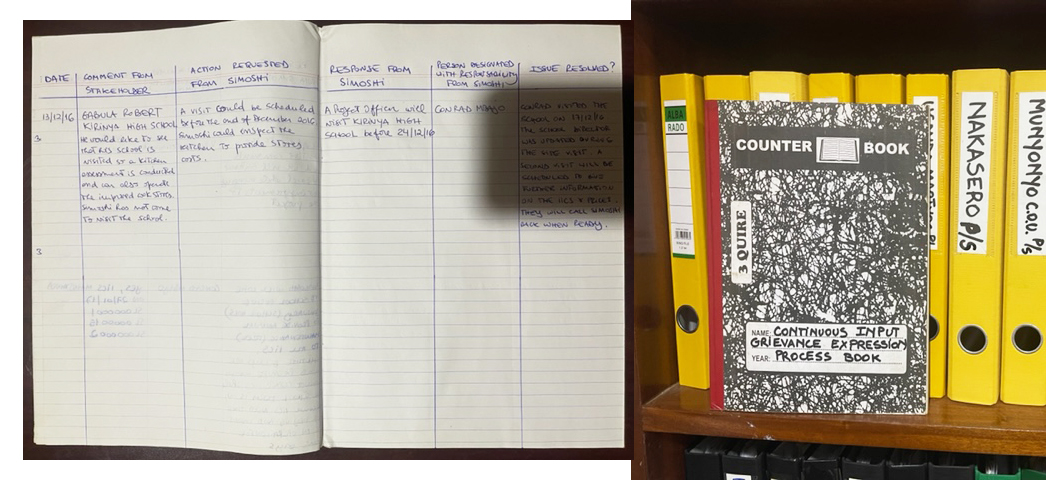 DATE
COMMENT FROM
STAKEHOLDER
ACTION REQUESTED
FROM SIMOSHI
RESPONSE FROM
SIMOSHI
PERSON DESIGNATED
WITH RESPONSABILITY
FROM SIMOSHI
ISSUE RESOLVED?
13/12/16
BABULA ROBERT
KIRINYA HIGH SCHOOL
He would like to see
that his school is
visited so a kitchen
assessment is conducted
and can also
the improved cookstoves.
Simoshi has not come
to visit the school.
A visit could be scheduled
before the end of December 2016.
Simoshi could inspect the
kitchen to provide stoves
costs.
A Project Officer will
visit KIRINYA HIGH
SCHOOL before 24/12/16
CONRAD
CONRAD VISITED THE
SCHOOL ON 17/12/16
THE SCHOOL DIRECTOR
WAS
THE SITE VISIT. A
SECOND VISIT WILL BE
SCHEDULED
FURTHER INFORMATION
ON THE ICS
THEY WILL CALL SIMOSHI
BACK WHEN READY.
3
3
ALBA
RADO
COUNTER BOOK
3 QUIRE
NAME: CONTINUOUS INPUT
GRIEVANCE EXPRESSION
YEAR: PROCESS BOOK
NAKASERO P/S
MUNYONYO C.O.U. P/S